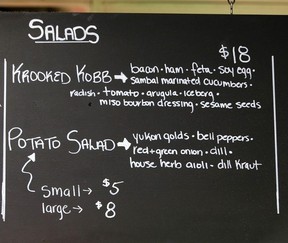 SALADS
$18
KROOKED KOBB → bacon · ham · feta · soy egg ·
sambal marinated cucumbers ·
radish · tomato · arugula · iceberg ·
miso bourbon dressing · sesame seeds
POTATO SALAD → yukon golds · bell peppers ·
red + green onion · dill ·
house herb aioli - dill kraut
small → $5
large → $8